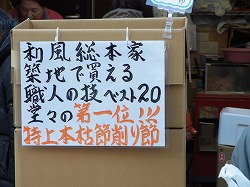 和風総本家
築地で買える
職人の技ベスト20
堂々の第一位!!!
特上本枯節削り節